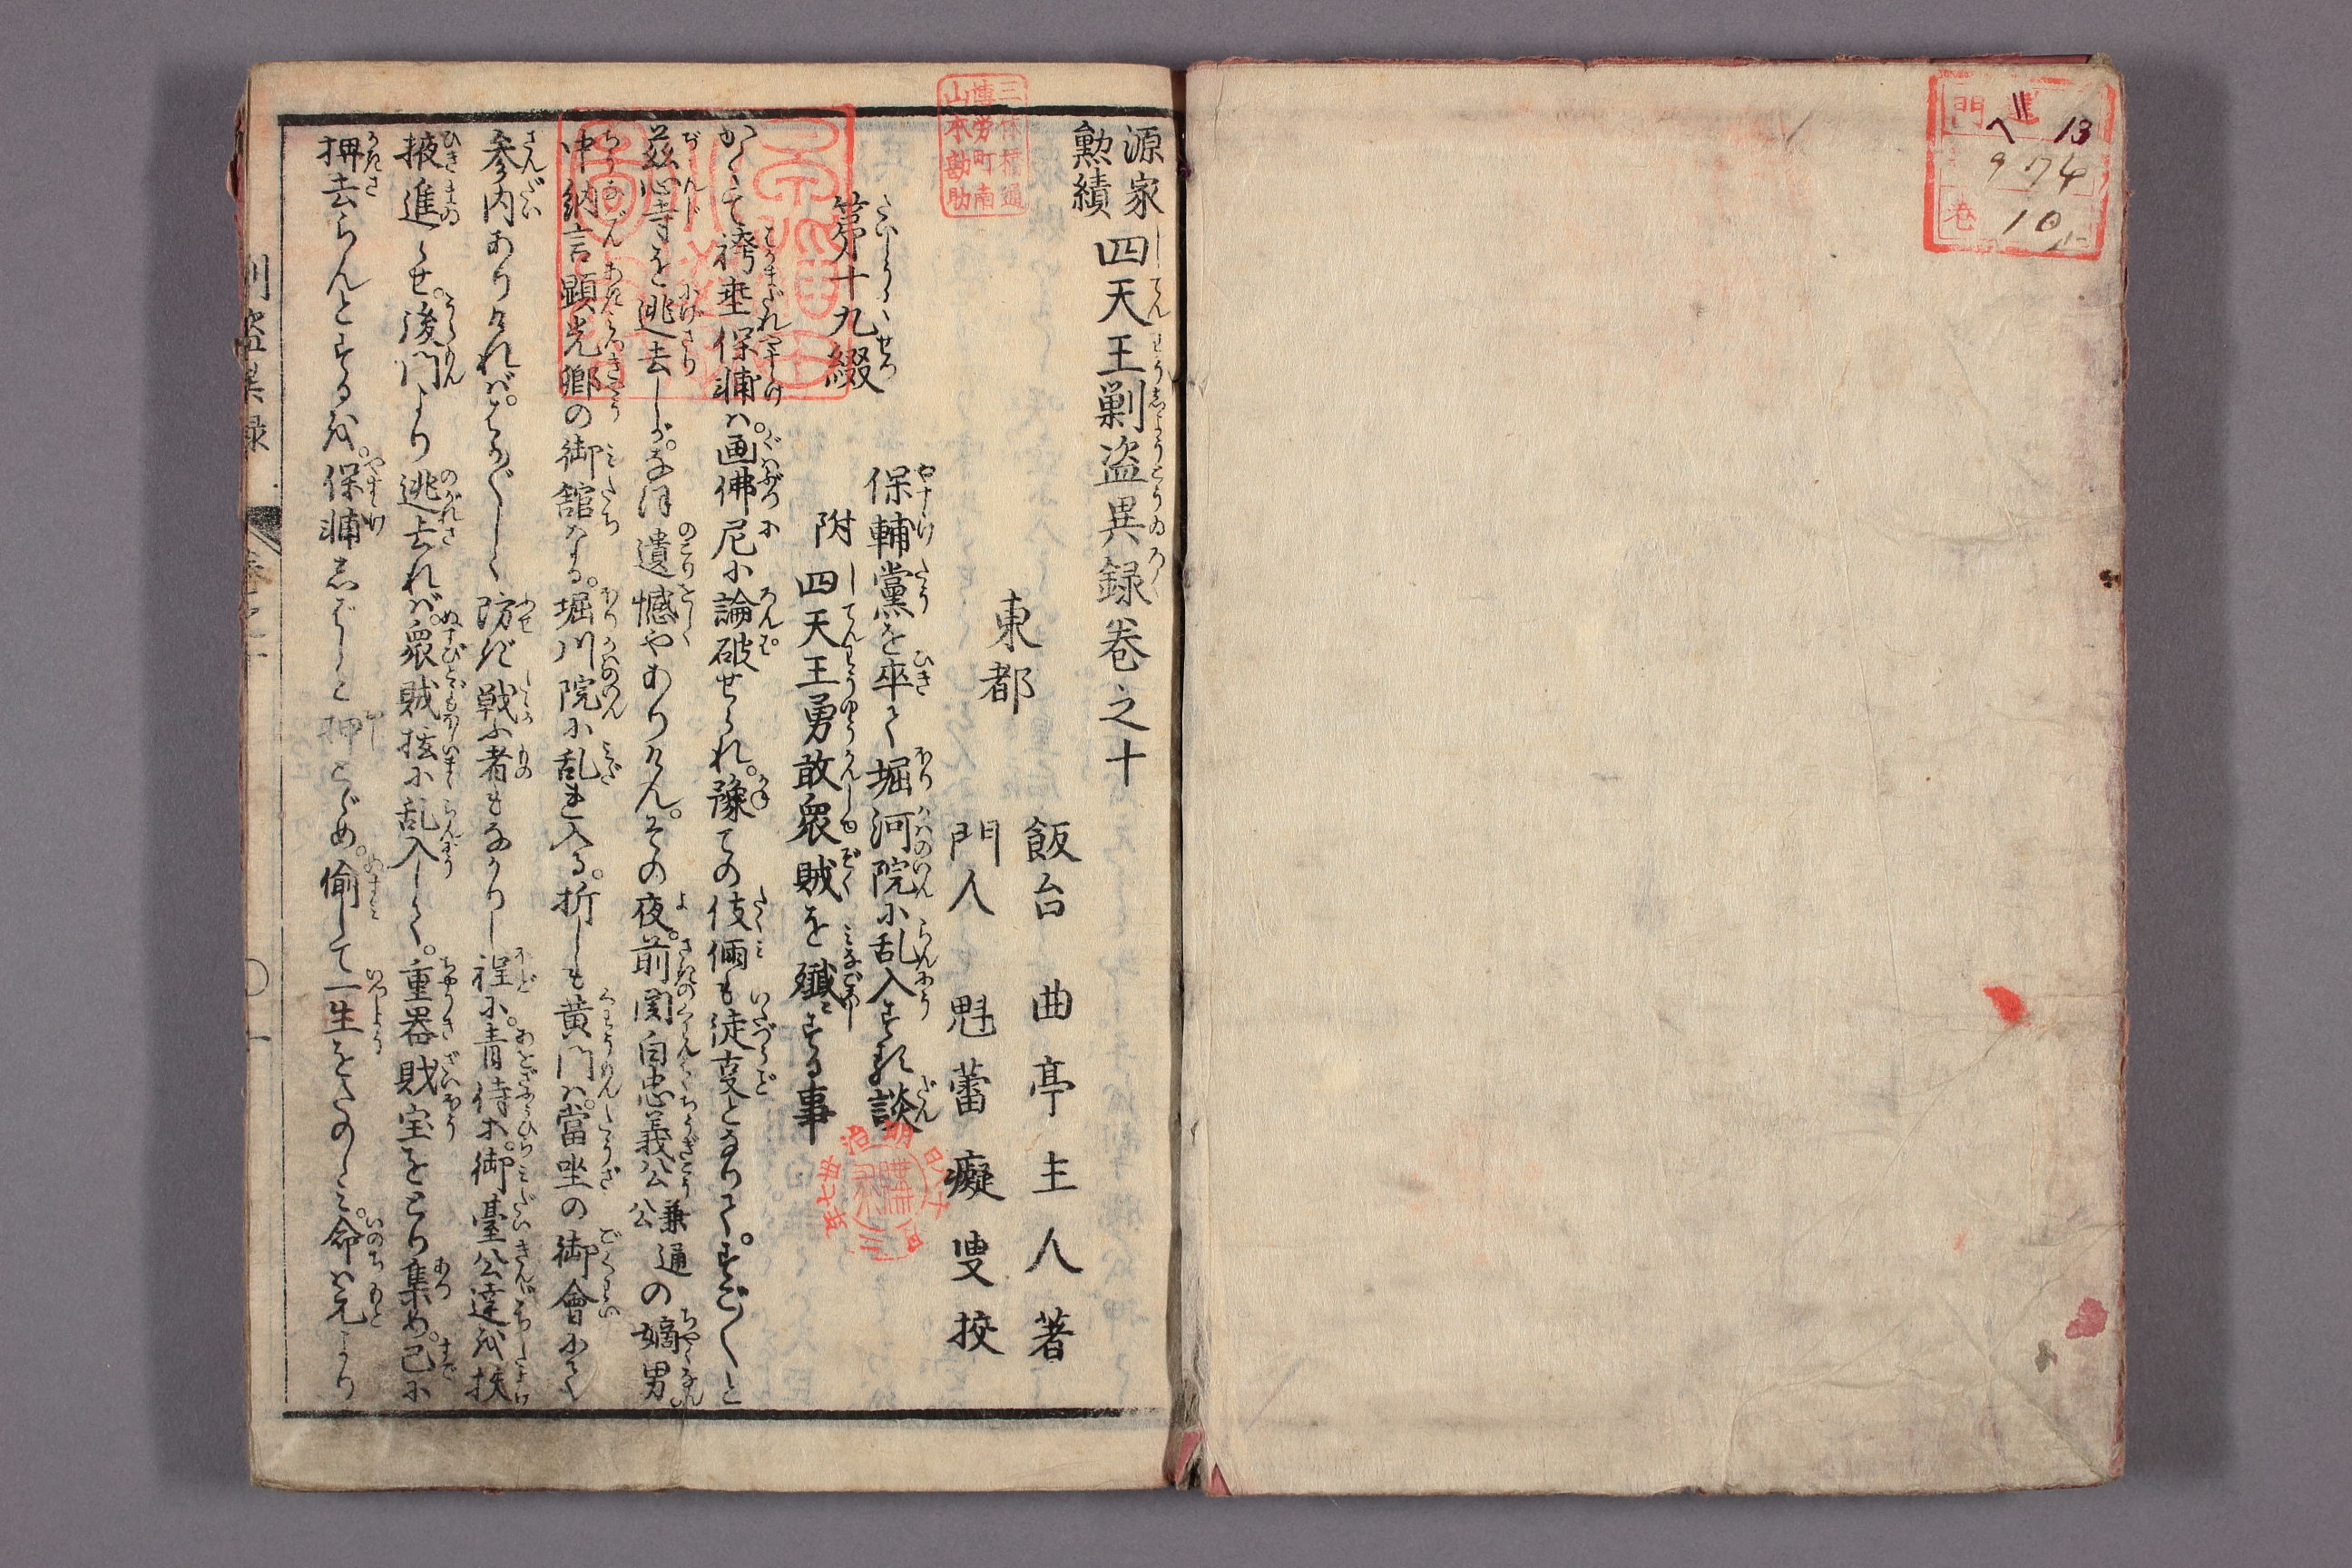 門
ヘ13
974
10
巻
源家
勲績
四天王剿盗異録巻之十
東都
飯台 曲亭主人著
門人 魁蕾癡叟挍
三条橋通
博労町南
山本勘助
第十九綴
保輔黨を卒て堀河院に乱入する談
附 四天王勇敢衆賊を殱にする事
かくて袴垂保輔ハ。画佛尼に論破せられ。豫ての伎倆も徒事となりて。すご〳〵と
茲心寺を逃去しが。なほ遺憾やありけん。その夜。前関白忠義公兼通公の嫡男。
中納言顕光卿の御舘なる。堀川院に乱れ入る。折しも黄門ハ。當坐の御會にて
参内ありければ。はか〴〵しく防ぎ戦ふ者もなかりし程に。青侍ホ。御臺公達を扶
掖進らせ。後門より逃去れば。衆賊挊に乱入して。重器財宝をとり集め。已に
搬去らんとするを。保輔しばしと押とゞめ。偸して一生をたのしむ。命ハ元より